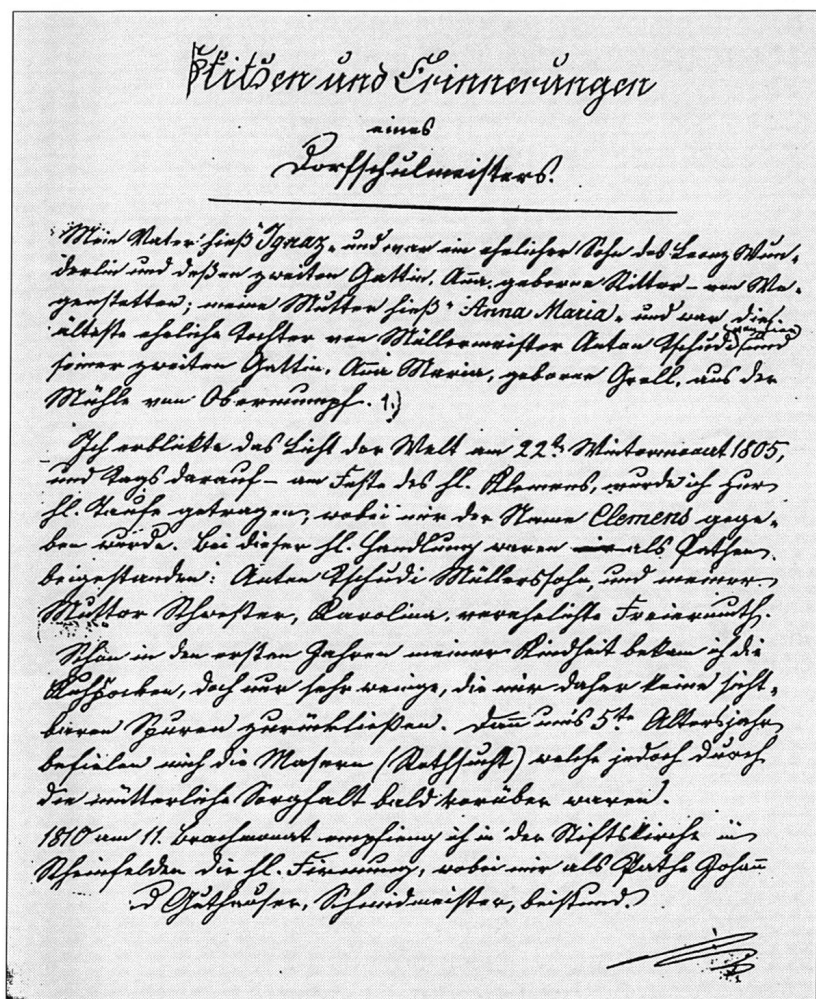 Skitzen und Erinnerungen
eines
Dorfschulmeisters.
Mein Vater hieß Ignaz, und war ein ehelicher Sohn des Leonz Wun-
derlin und deßen zweiten Gattin, Anna, geborne Ritter – von We-
genstetten; meine Mutter hieß Anna Maria, und war die
älteste eheliche Tochter von Müllermeister Anton Tschudi und
seiner zweiten Gattin, Anna Maria, geborne Grell, aus der
Mühle von Obermumpf. 1.)
Ich erblickte das Licht der Welt am 22t Wintermonat 1805,
und tags darauf – am Feste des hl. Klemens, wurde ich zur
hl. Taufe getragen, wobei mir der Name Clemens gege-
ben wurde. Bei dieser hl. Handlung waren als Pathen
beigestanden: Anton Tschudi Müllerssohn, und meiner
Mutter Schwester, Karolina, verehelichte Freiermuth.
Schon in den ersten Jahren meiner Kindheit bekam ich die
Kuhpocken, doch nur sehr wenige, die mir daher keine sicht-
baren Spuren zurückließen. Dann ums 5te Altersjahr
befielen mich die Masern (Rothsucht) welche jedoch durch
die mütterliche Sorgfalt bald vorüber waren.
1810 am 11. Brachmonat empfieng ich in der Stiftskirche in
Rheinfelden die hl. Firmung, wobei mir als Pathe Johann
Guthauser, Schmidmeister, beistund.